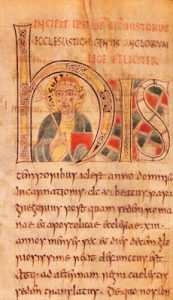 INCIPIT IPSIUS SEC HISTORIAE
ECCLESIASTICAE GENTIS ANGLORUM
FELICITER
his
temporibus id est anno dominic
Incarnationis dcu beatus papa
gregorius post quam sedem roman
ae et apostolicae ecclesiae xiii
annos menses sex et dies decem glo
riosissime rexit defunctus est
Atq; ad aeternam regni caelestis
sedem translatus. De quo nos